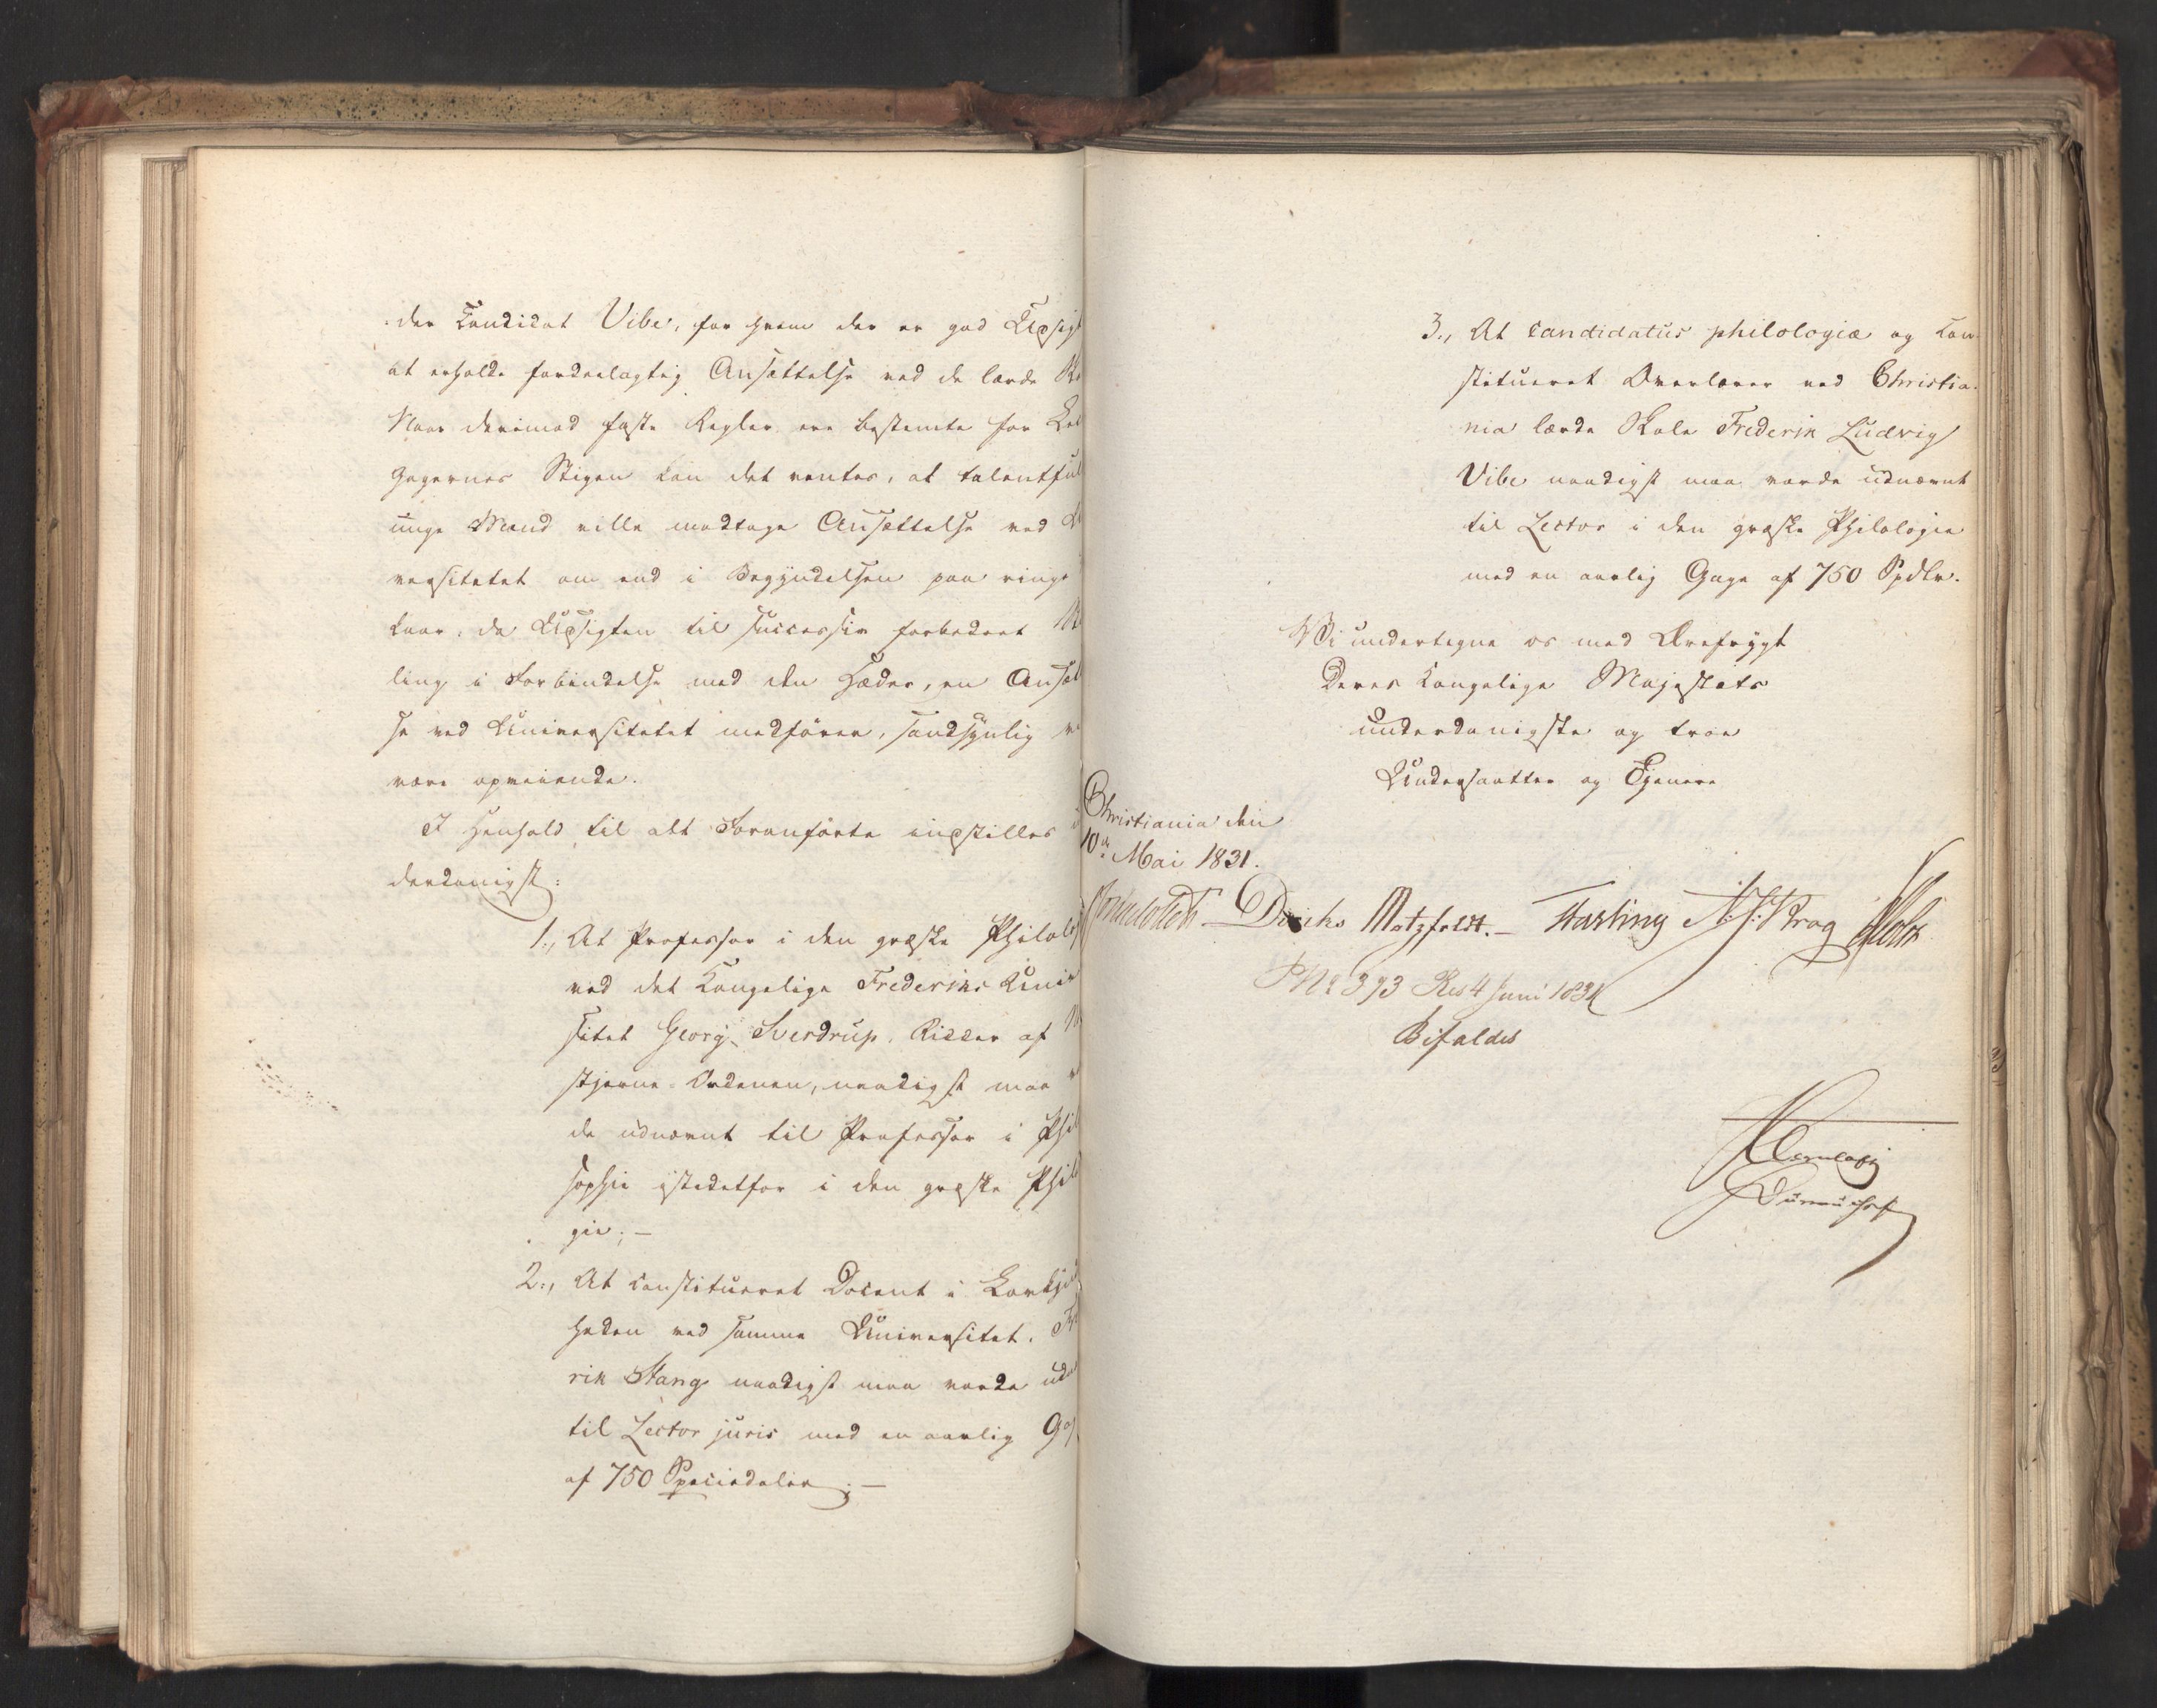 der Candidat Vibe, for hvem der er god Udsigt
at erholde fordeelagtig Ansættelse ved de lærde
Naar derimod faste Regler ere bestemte for
Gagernes Stigen kan det ventes, at talentful
unge Mænd ville modtage Ansættelse ved
versitetet om end i Begyndelsen paa ringe
Kaar, da Udsigten til successiv forbedret
ling i Forbindelse med den Hæder, en Ansæt
se ved Universitetet medfører, sandsynlig
være opveiende.
I Henhold til alt Foranførte indstilles
derdanigst:
1., At Professor i den græske Philolo
ved det Kongelige Frederiks Univ
sitet Georg Sverdrup, Ridder af
stjerne-Ordenen, naadigst maa
de udnævnt til Professor i Phil
sophie istedetfor i den græske Philo
gie; —
2., At constitueret Docent i Lovkyn
heden ved samme Universitet,
rik Stang naadigst maa vorde ud
til Lector juris med en aarlig Ga
af 750 Speciedaler; —
3., At candidatus philologiæ og con-
stitueret Overlærer ved Christia-
nia lærde Skole Frederik Ludvig
Vibe naadigst maa vorde udnævnt
til Lector i den græske Philologie
med en aarlig Gage af 750 Spdlr.
Vi undertegne os med Ærefrygt
Deres Kongelige Majestæts
underdanigste og troe
Undersaatter og Tjenere
Christiania den
10de Mai 1831.
Diriks Motzfeldt. — Fasting N. J. Krog Holst
No 393 Res 4 Juni 1831
Bifaldes